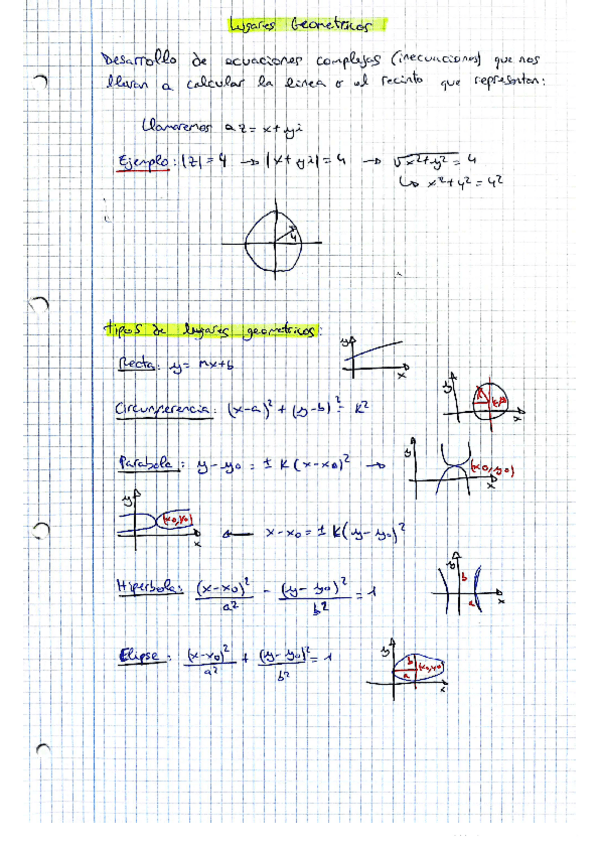 Lugares Geometricos
Desarrollo de ecuaciones complejas (inecuaciones) que nos
llevan a calcular la linea o el recinto que representan:
Llamaremos a z = x+yi
Ejemplo: |z| = 4 → |x+yi| = 4 → √x²+y² = 4
↳ x²+y² = 4²
4
tipos de lugares geometricos:
Recta: y = mx+b
y
x
Circunferencia: (x-a)² + (y-b)² = R²
y
x
Parabola: y-y0 = ± K (x-x0)² →
y
(x0,y0)
x
y
(x0,y0)
x
← x-x0 = ± K(y-y0)²
Hiperbola: (x-x0)²/a² - (y-y0)²/b² = 1
y
b
a
x
Elipse: (x-x0)²/a² + (y-y0)²/b² = 1
y
b
(x0,y0)
a
x